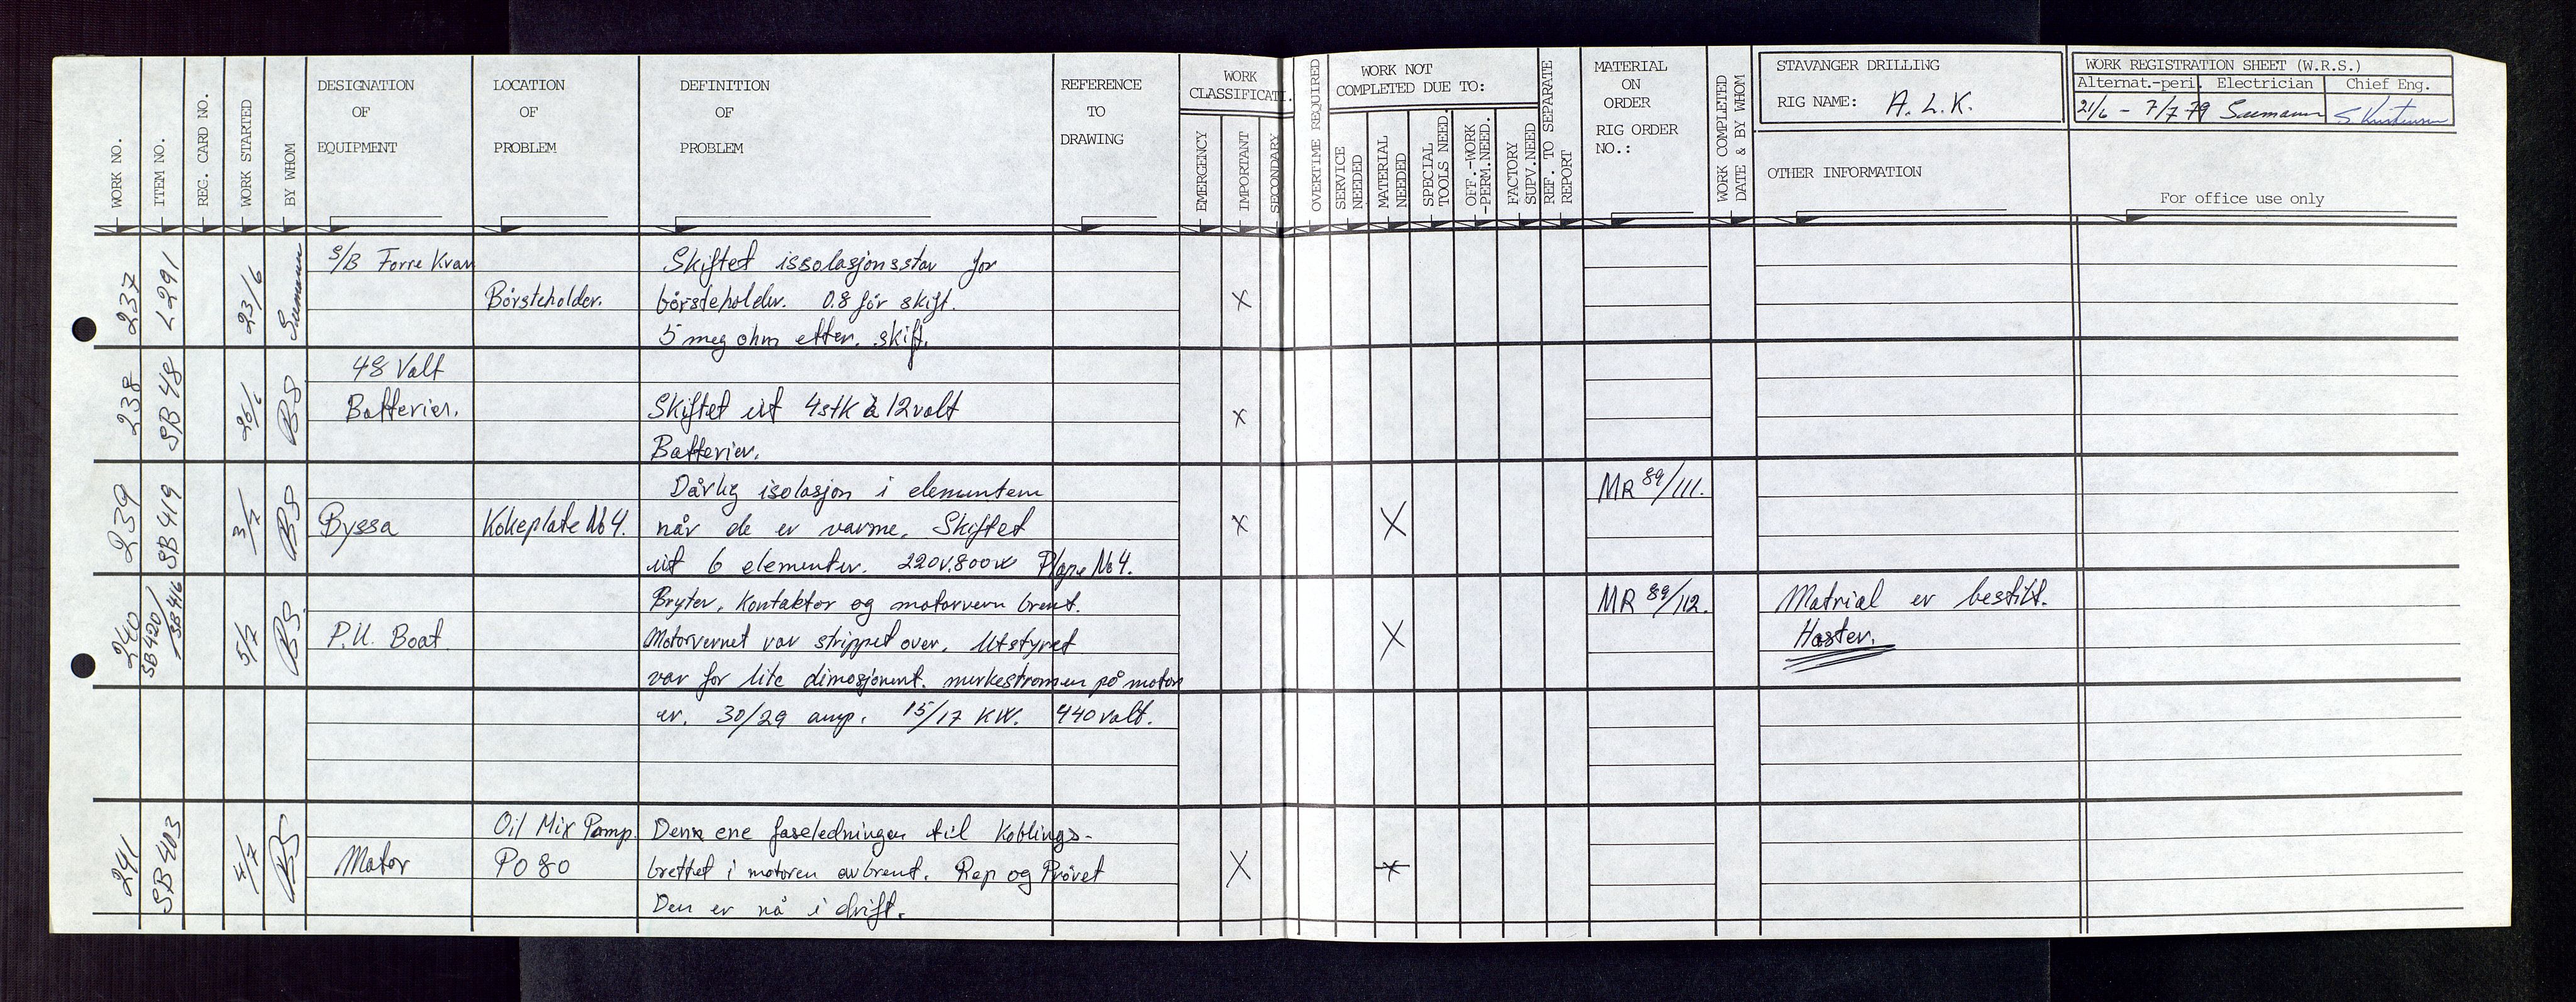 WORK NO.
ITEM NO.
REG. CARD NO.
WORK STARTED
BY WHOM
DESIGNATION
OF
EQUIPMENT
LOCATION
OF
PROBLEM
DEFINITION
OF
PROBLEM
REFERENCE
TO
DRAWING
WORK
CLASSIFICATI.
EMERGENCY
IMPORTANT
SECONDARY
OVERTIME REQUIRED
WORK NOT
COMPLETED DUE TO:
SERVICE
NEEDED
MATERIAL
NEEDED
SPECIAL
TOOLS NEED.
OFF.-WORK
-PERM.NEED.
FACTORY
SUPV.NEED
REF. TO SEPARATE
REPORT
MATERIAL
ON
ORDER
RIG ORDER
NO.:
WORK COMPLETED
DATE & BY WHOM
STAVANGER DRILLING
RIG NAME: A.L.K.
OTHER INFORMATION
WORK REGISTRATION SHEET (W.R.S.)
Alternat.-peri. Electrician Chief Eng.
21/6 - 7/7 79 Suemann
For office use only
237 L291 23/6 Suemann
S/B Forre Kran
Börsteholder.
Skiftet issolasjonsstav for
börsteholder. 0.8 för skift.
5 meg ohm etter. skift.
X
238 SB 48 26/6 BS
48 Valt
Batterier.
Skiftet ut 4stk à 12volt
Batterier.
X
239 SB 419 3/7 BS
Byssa
Kokeplate No 4.
Dårlig isolasjon i elementem
når de er varme. Skiftet
ut 6 elementer. 220V.800W No 4.
X X
MR 89/111.
240 SB420/ SB416 5/7 BS
P.U. Boat.
Bryter, Kontaktor og motorvern brent.
Motorvernet var strippet over. Utstyret
var for lite dimosjonent. merkestrommen på motor
er. 30/29 amp. 15/17 KW. 440 valt.
X
MR 89/112.
Matrial er bestilt.
Haster.
241 SB 403 4/7 BS
Motor
Oil Mix Pomp.
PO 80
Denn ene faseledningen til Koblings-
brettet i motoren avbrent. Rep og Prövet
Den er nå i drift.
X X